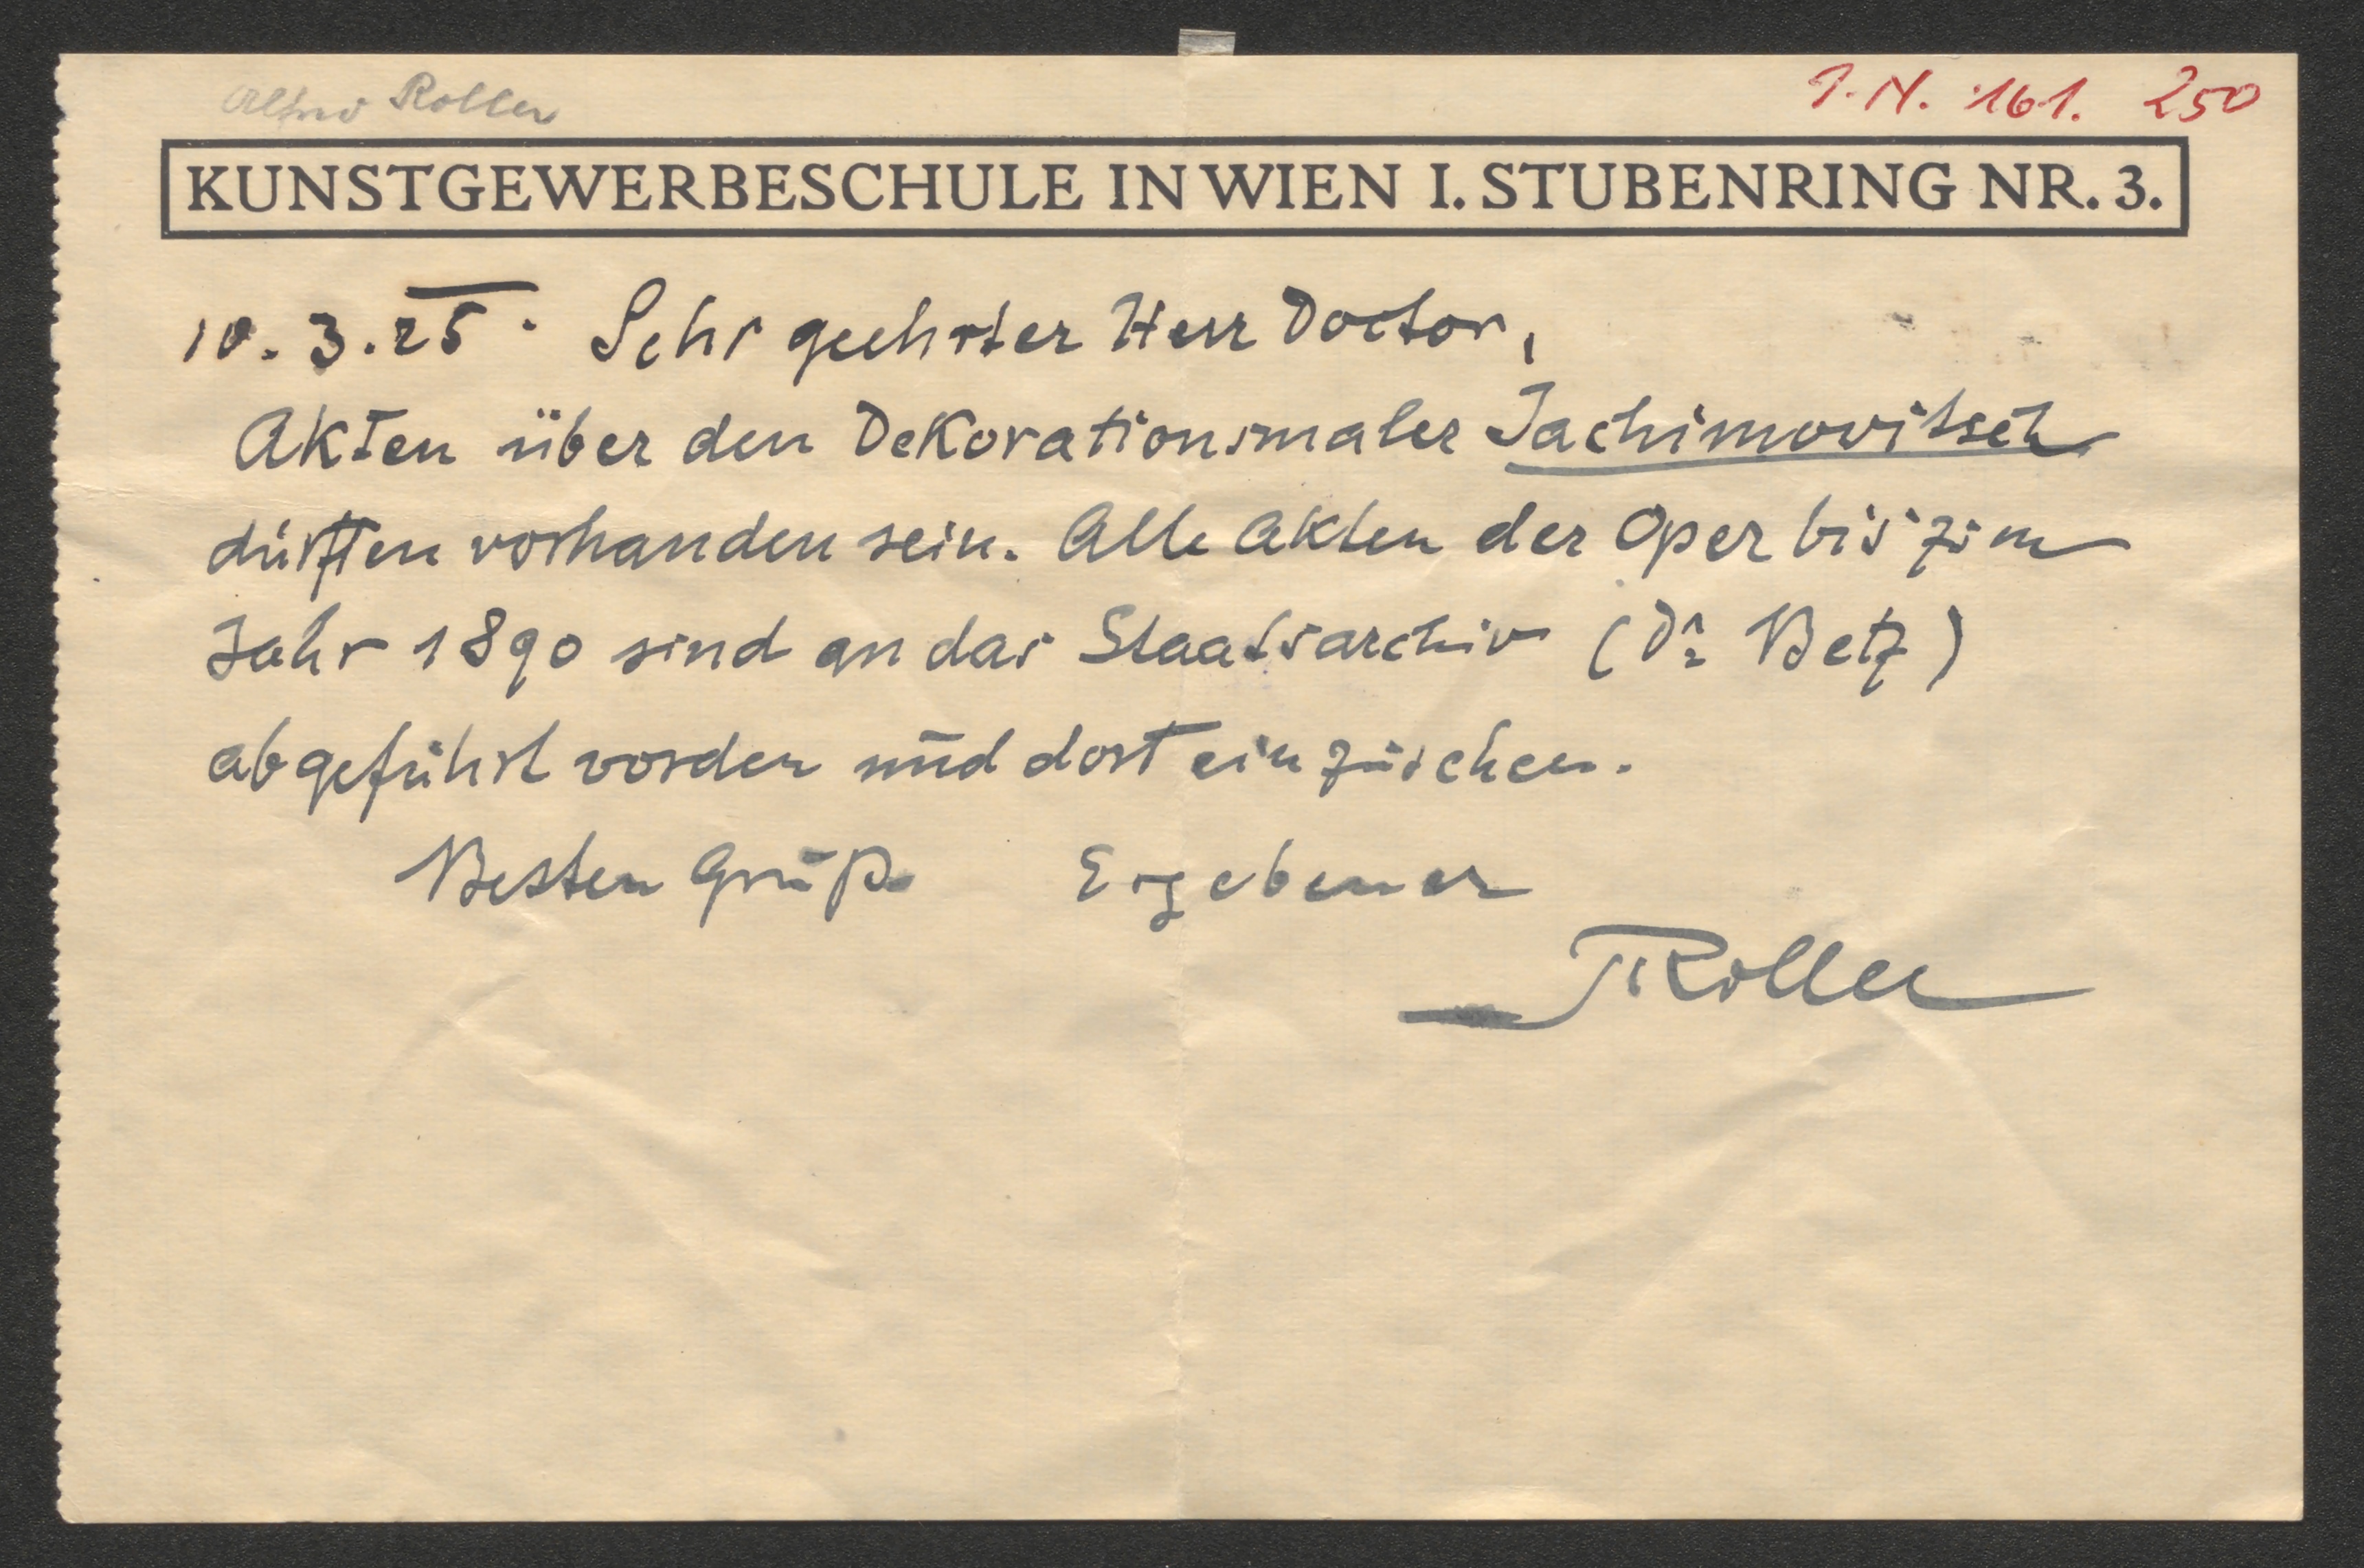 Alfred Roller
I.N. 161.250
KUNSTGEWERBESCHULE IN WIEN I. STUBENRING NR. 3.
10. 3. 25. Sehr geehrter Herr Doctor,
Akten über den Dekorationsmaler Jachimovitsch
dürften vorhanden sein. Alle Akten der Oper bis zum
Jahr 1890 sind an das Staatsarchiv (Dr Betz)
abgeführt worden und dort einzusehen.
Besten Gruß Ergebener
Roller